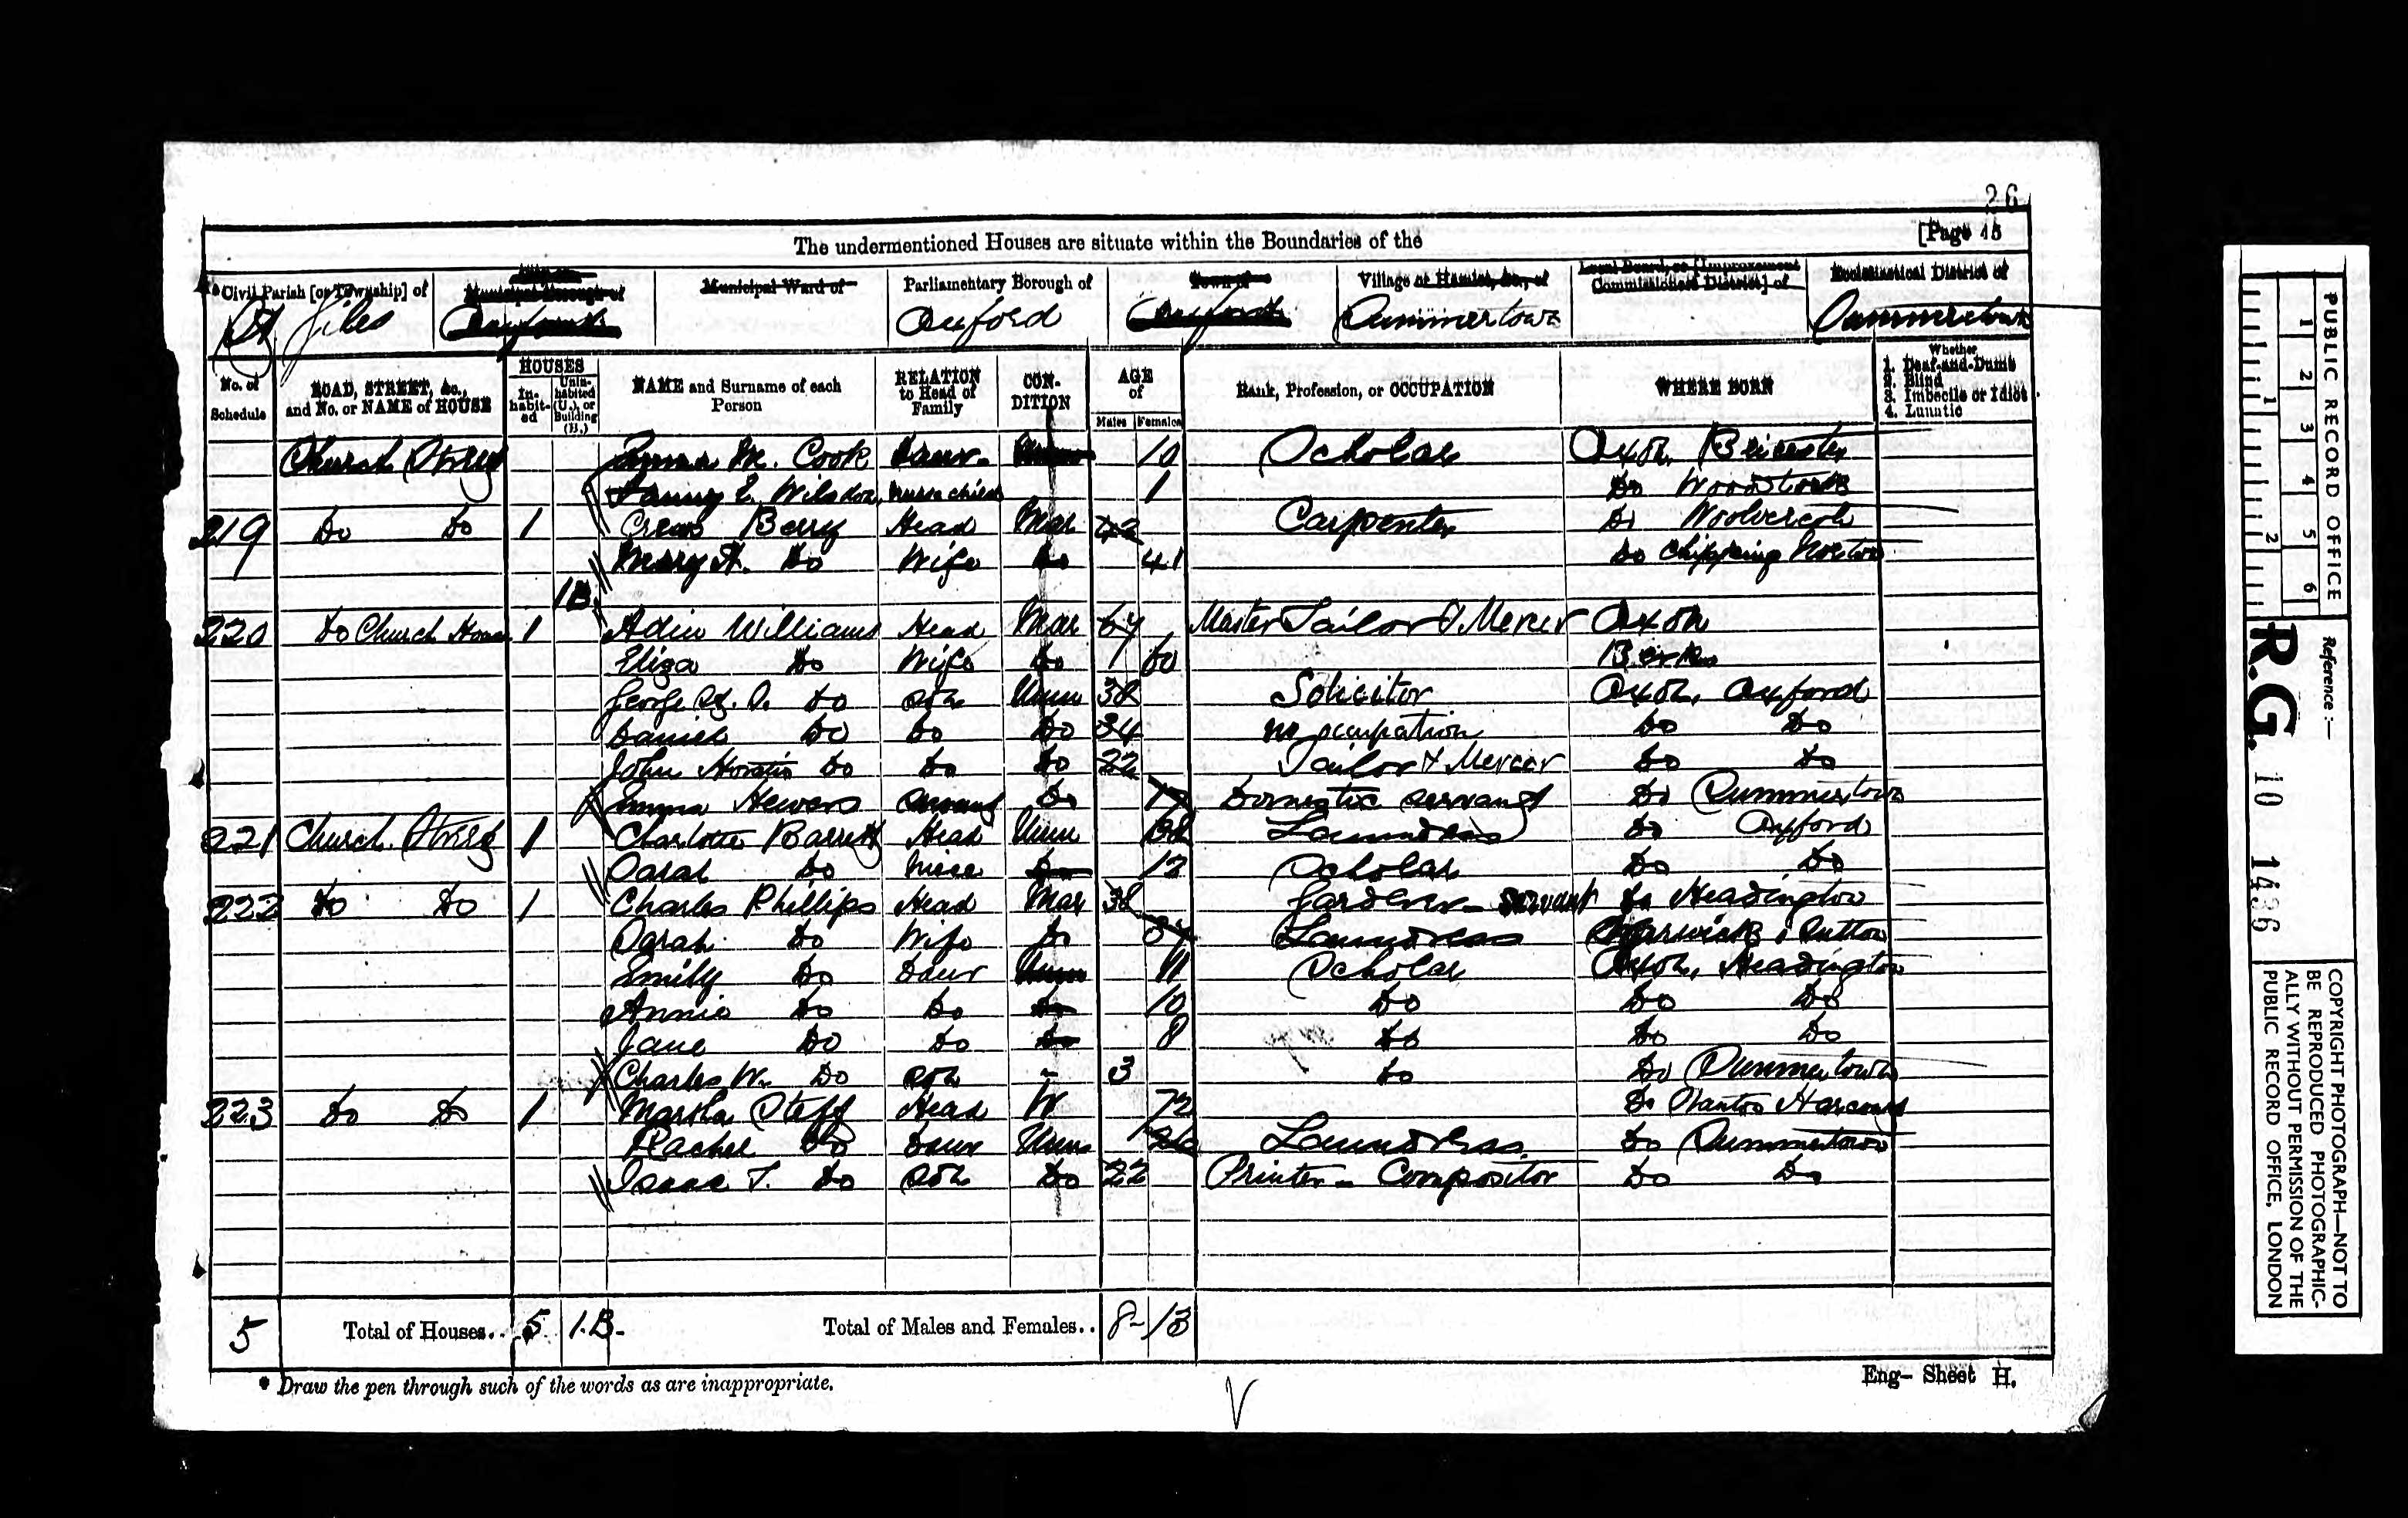 26
The undermentioned Houses are situate within the Boundaries of the [Page 15
Civil Parish [or Township] of Municipal Borough of Municipal Ward of Parliamentary Borough of Town of Village or Hamlet, &c., of Local Board, or [Improvement Commissioners District] of Ecclesiastical District of
St Giles Oxford Oxford Summertown Summertown
No. of Schedule ROAD, STREET, &c., and No. or NAME of HOUSE HOUSES In-habit-ed Unin-habited (U.), or Building (B.) NAME and Surname of each Person RELATION to Head of Family CON-DITION AGE of Males Females Rank, Profession, or OCCUPATION WHERE BORN Whether 1. Deaf-and-Dumb 2. Blind 3. Imbecile or Idiot 4. Lunatic
Church Street Emma M. Cook Daur. 10 Scholar Oxon Bicester
Fanny E. Wilsdon nurse child 1 Do Woodstock
219 Do Do 1 Berry Head Mar 42 Carpenter Do Woolvercot
Mary A. Do Wife Do 41 Do Chipping Norton
1B.
220 Do Church House 1 Adin Williams Head Mar 64 Master Tailor & Mercer Oxon
Eliza Do Wife Do 60 Berks
George Do Son Unm 38 Solicitor Oxon, Oxford
Daniel Do Do Do 34 no occupation Do Do
John Horatio Do Do Do 22 Tailor & Mercer Do Do
Emma Hewers Servant Do 17 Domestic Servant Do Summertown
221 Church Street 1 Charlotte Barrett Head Unm 38 Laundress Do Oxford
Sarah Do Niece Do 12 Scholar Do Do
222 Do Do 1 Charles Phillips Head Mar 38 Gardener - Servant Do Headington
Sarah Do Wife Do Laundress Warwick, Sutton
Emily Do Daur Unm 11 Scholar Oxon, Headington
Annie Do Do Do 10 Do Do Do
Jane Do Do Do 8 Do Do Do
Charles W. Do Son - 3 Do Do Summertown
223 Do Do 1 Martha Steff Head W 72 Do Stanton Harcourt
Rachel Do Daur Unm 26 Laundress Do Summertown
Isaac T. Do Son Do 22 Printer - Compositor Do Do
5 Total of Houses.. 5 1.B. Total of Males and Females.. 8 13
* Draw the pen through such of the words as are inappropriate.
Eng- Sheet H.
PUBLIC RECORD OFFICE
1 2 3 4 5 6
1 2
Reference :-
R.G. 10 1436
COPYRIGHT PHOTOGRAPH—NOT TO
BE REPRODUCED PHOTOGRAPHIC-
ALLY WITHOUT PERMISSION OF THE
PUBLIC RECORD OFFICE, LONDON